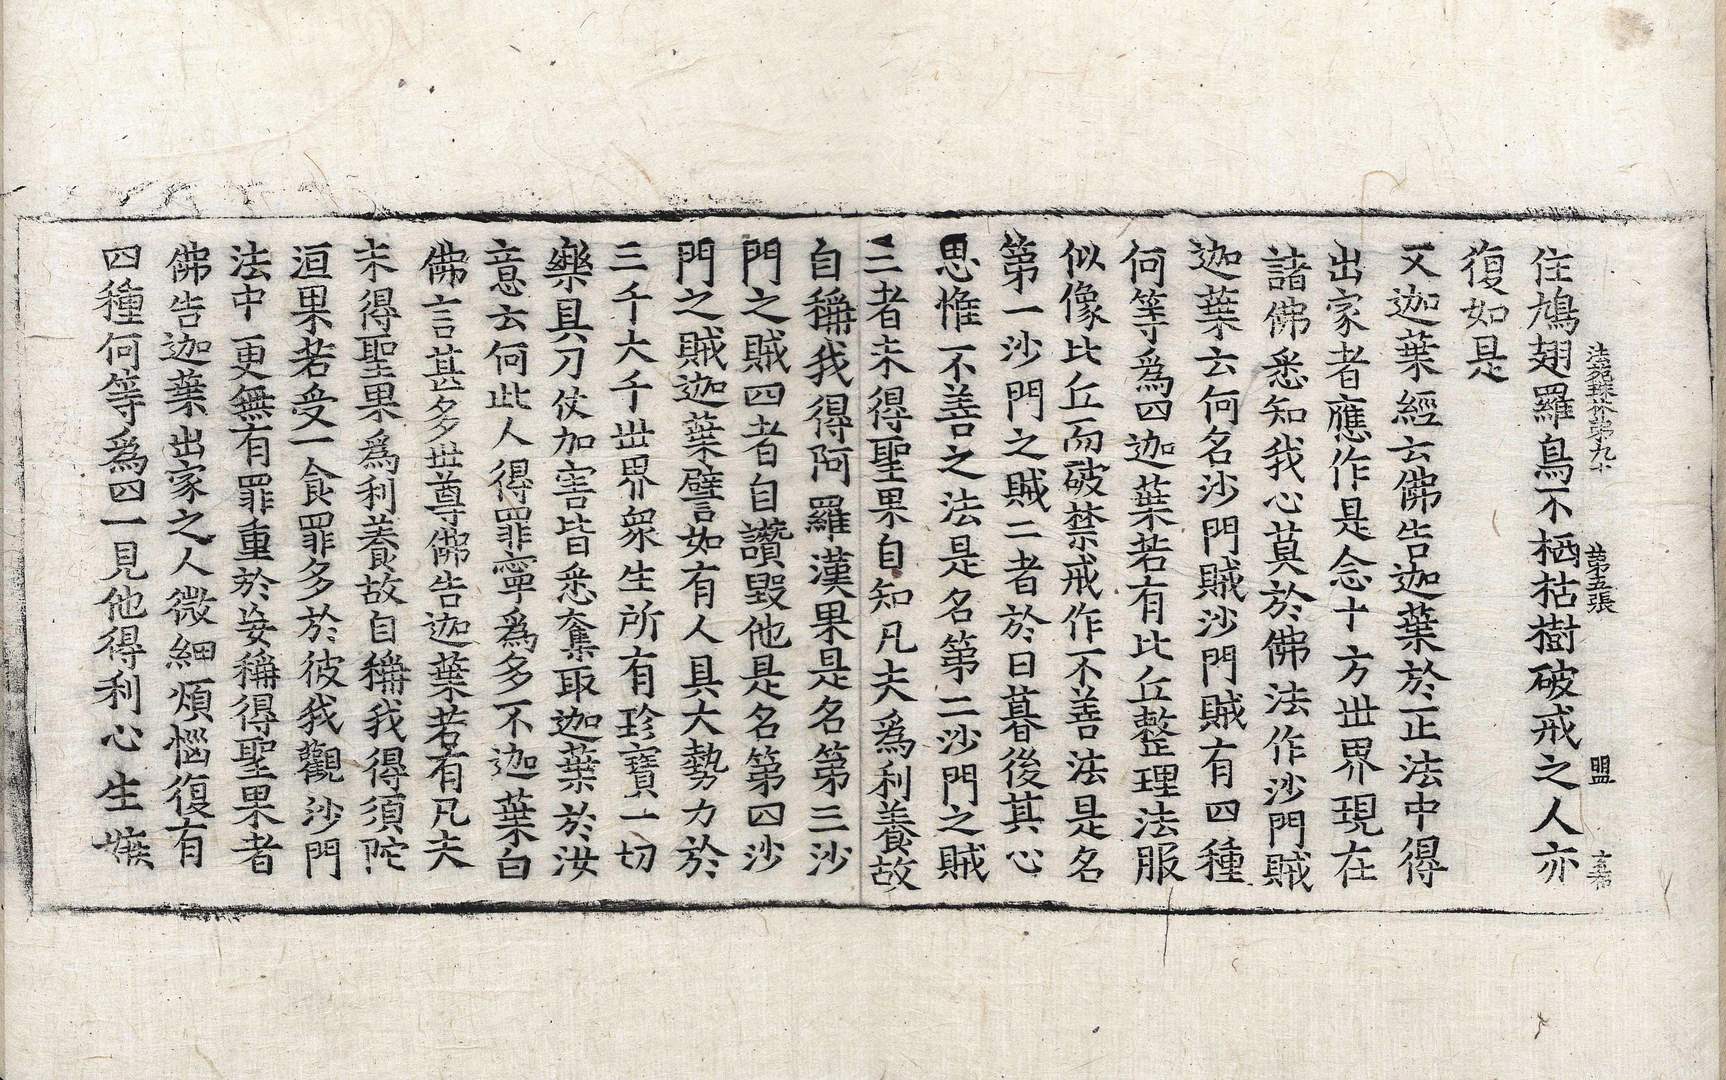 法苑珠林第九十　第五張　盟
住鳩翅羅鳥不栖枯樹破戒之人亦
復如是
又迦葉經云佛告迦葉於正法中得
出家者應作是念十方世界現在
諸佛悉知我心莫於佛法作沙門賊
迦葉云何名沙門賊沙門賊有四種
何等爲四迦葉若有比丘整理法服
似像比丘而破禁戒作不善法是名
第一沙門之賊二者於日暮後其心
思惟不善之法是名第二沙門之賊
三者未得聖果自知凡夫爲利養故
自稱我得阿羅漢果是名第三沙
門之賊四者自讚毀他是名第四沙
門之賊迦葉譬如有人具大勢力於
三千大千世界衆生所有珍寶一切
樂具刀仗加害皆悉奪取迦葉於汝
意云何此人得罪寧爲多不迦葉白
佛言甚多世尊佛告迦葉若有凡夫
未得聖果爲利養故自稱我得須陀
洹果若受一食罪多於彼我觀沙門
法中更無有罪重於妄稱得聖果者
佛告迦葉出家之人微細煩惱復有
四種何等爲四一見他得利心生嫉